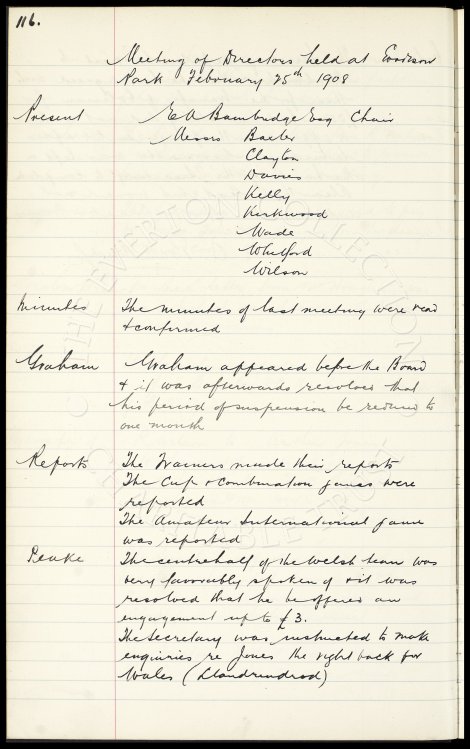 116.
Meeting of Directors held at Goodison
Park February 25th 1908
Present E A Bainbridge Esq Chair
Messrs Baxter
Clayton
Davies
Kelly
Kirkwood
Wade
Whitford
Wilson
Minutes The minutes of last meeting were read
& confirmed
Graham Graham appeared before the Board
& it was afterwards resolved that
his period of suspension be reduced to
one month
Reports The Trainers made their reports
The Cup & Combination games were
reported
The Amateur International game
was reported
Peake The centre half of the Welsh team was
very favorably spoken of & it was
resolved that he be offered an
engagement up to £3.
The Secretary was instructed to make
enquiries re Jones the right back for
Wales (Llandrindrod)
THE EVERTON COLLECTION